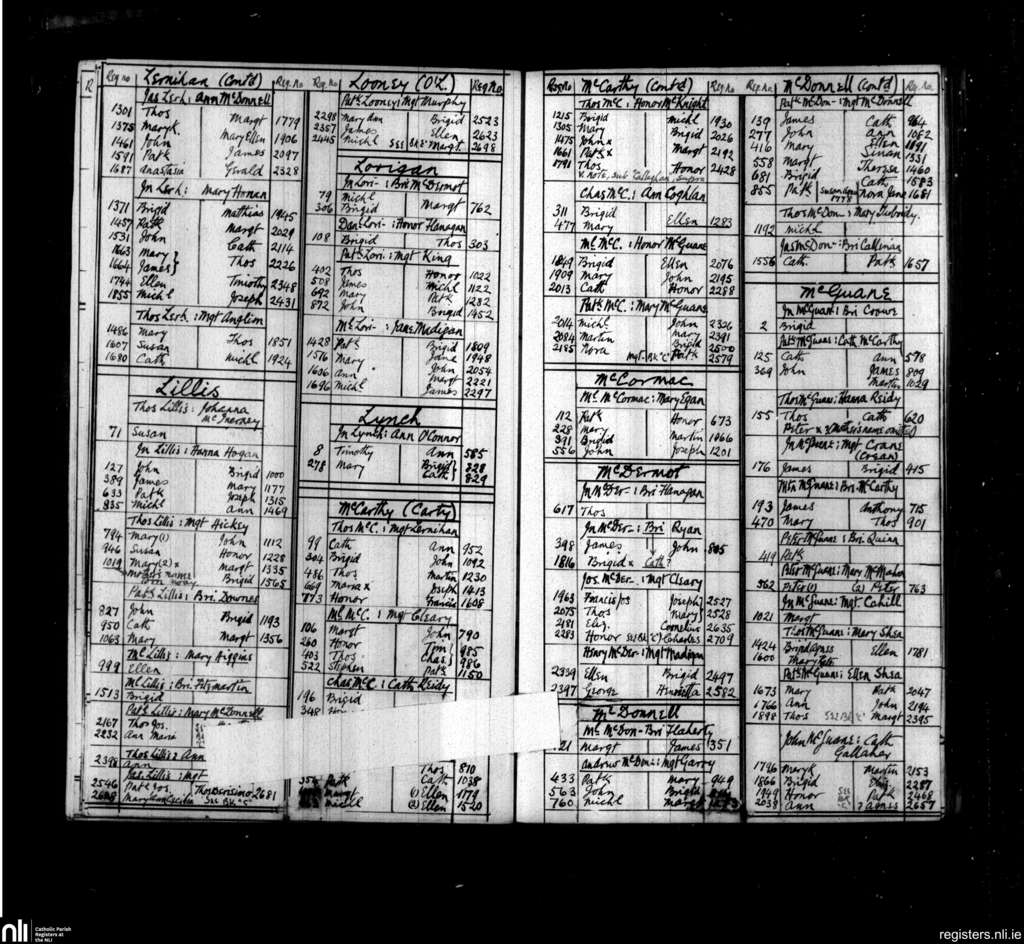 R
Reg no Lernihan (Cont'd) Reg. No
Jas Lerh: Ann McDonnell
1301 Thos Margt 1779
1375 Maryk. Mary Ellen 1906
1461 John James 2097
1591 Patk Gerald 2328
1687 Anastasia
Jn Lerh: Mary Honan
1371 Brigid Mathias 1945
1457 Patk Margt 2029
1531 John Cath 2114
1663 Mary } Thos 2226
1664 James }
1744 Ellen Timothy 2348
1855 Michl Joseph 2431
Thos Lerh: Mgt Anglim
1486 Mary Thos 1851
1607 Susan
1680 Cath Michl 1924
Lillis
Thos Lillis: Johanna
McInerney
71 Susan
Jn Lillis: Hanna Hogan
127 John Brigid 1000
389 James Mary 1177
633 Patk Joseph 1315
835 Michl Ann 1469
Thos Lillis: Mgt Hickey
794 Mary(1) John 1112
946 Susan Honor 1228
1019 Mary(2) x Margt 1335
Brigid 1565
Patk Lillis: Bri. Downes
827 John Brigid 1193
950 Cath
1063 Mary Margt 1356
Ml Lillis: Mary Higgins
999 Ellen
Ml Lillis: Bri. Fitzmartin
1513 Brigid
Patk Lillis: Mary McDonnell
2167 Thos Jos.
2232 Ann Maria
Thos Lillis: Ann
2398 Ann
Jas. Lillis: Mgt
2546 Patk Jos 2681
See Bk "C"
Reg. No Looney (O'L.) Reg No
Patk Looney: Mgt Murphy
2298 Mary Ann Brigid 2523
2357 James Ellen 2623
2445 Michl See Bk "C" Margt. 2698
Lorigan
Jn Lori-: Bri McDermot
79 Michl
306 Brigid Margt 762
Danl Lori-: Honor Flanagan
108 Brigid Thos 303
Patk Lori.: Mgt King
402 Thos Honor 1022
508 James Michl 1122
692 Mary Patk 1232
872 John Brigid 1452
Ml Lori-: Jane Madigan
1428 Patk Brigid 1809
1576 Mary Jane 1948
1606 Ann John 2054
1696 Michl Margt 2221
James 2297
Lynch
Jn Lynch: Ann O'Connor
8 Timothy Ann 585
278 Mary Brigid } 828
Cath } 829
McCarthy (Carty)
Thos McC.: Mgt Lernihan
99 Cath Ann 952
304 Brigid John 1092
486 Thos Martin 1230
669 Maria x Joseph 1413
873 Honor Francis 1608
Ml McC.: Mgt Cleary
106 Margt John 790
260 Honor Tim } 985
403 Thos Chas } 986
522 Stephen Patk 1150
Chas McC: Cath Reidy
196 Brigid
348
Thos 810
Patk Cath 1038
Margt (1) Ellen 1179
Michl (2) Ellen 1520
Reg no McCarthy (Cont'd) Reg No
Thos McC: Honor McKnight
1215 Brigid Michl 1930
1305 Mary Brigid 2026
1475 John x
1661 Patk x Margt 2192
1791 Thos Honor 2428
V. note, sub Callaghan supra
Chas McC: Ann Coghlan
311 Brigid
477 Mary Ellen 1283
Ml McC.: Honor McGuane
1849 Brigid Ellen 2076
1909 Mary John 2195
2013 Cath Honor 2288
Patk McC.: Mary McGuane
2014 Michl John 2326
2084 Martin Mary 2391
2185 Nora Brigid 2500
Mgt-Bk "C" Patk 2579
McCormac
Ml McCormac: Mary Egan
112 Honor 673
228 Mary
391 Brigid Martin 1066
556 John Joseph 1201
McDermot
Jn McDer-: Bri Flanagan
617 Thos
Jn McDer-: Bri Ryan
398 James John 885
1816 Brigid x Cath?
Jos. McDer-: Mgt Cleary
1963 Francis Jos Joseph } 2527
2075 Thos Mary } 2528
2181 Eliz. Cornelius 2635
2283 Honor See Bk "C" Charles 2709
Henry McDer-: Mgt Madigan
2339 Ellen Brigid 2497
2397 George Henrietta 2582
McDonnell
Ml McDon- Bri Flaherty
121 Margt James 351
Andrew McDon: Mgt Garry
433 Patk Mary 949
563 John Brigid
760 Michl Margt
Reg No McDonnell (Cont'd) Reg No
Patk McDon-: Mgt McDonnell
139 James Cath 964
277 John Ann 1062
416 Mary Ellen 1191
558 Margt Susan 1331
681 Brigid Theresa 1460
855 Patk Cath 1583
Nora Jane 1681
Thos McDon-: Mary Tubridy
1192 Michl
Jas McDon-: Bri Callinan
1556 Cath. Patk 1657
McGuane
Jn McGuane: Bri Crowe
2 Brigid
Patk McGuane: Cath McCarthy
125 Cath Ann 578
369 John James 809
Martin 1029
Thos McGuane: Hanna Reidy
155 Thos Cath 620
Peter x (Mother's name omitted)
Jn McGuane: Mgt Crane
(Cregan)
176 James Brigid 415
Bri McCarthy
193 James Anthony 715
470 Mary Thos 901
Peter McGuane: Bri. Quinn
419 Patk
Peter McGuane: Mary McMahon
562 Peter(1) (2) Peter 763
Jn McGuane: Mgt. Cahill
1021 Margt
Thos McGuane: Mary Shea
1424 Brigid Agnes Ellen 1781
1600 Mary Kate
Patk McGuane: Ellen Shea
1673 Mary Patk 2047
1766 Ann John 2194
1898 Thos See Bk "C" Margt 2395
John McGuane: Cath
Gallaher
1796 Maryk Martin 2153
1866 Brigid Eliz 2287
1949 Honor Patk 2468
2039 Ann Agnes 2657
See Bk "C"
nli Catholic Parish
Registers at
the NLI
registers.nli.ie